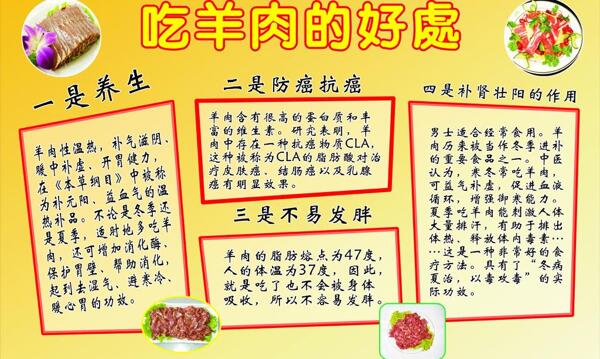 吃羊肉的好處
一是养生
羊肉性温热，补气滋阴、
暖中补虚、开胃健力，
在《本草纲目》中被称
为补元阳、益血气的温
热补品。不论是冬季还
是夏季，适时地多吃羊
肉，还可增加消化酶、
保护胃壁、帮助消化，
起到去湿气、避寒冷、
暖心胃的功效。
二是防癌抗癌
羊肉含有很高的蛋白质和丰
富的维生素。研究表明，羊
肉中存在一种抗癌物质CLA，
这种被称为CLA的脂肪酸对治
疗皮肤癌、结肠癌以及乳腺
癌有明显效果。
三是不易发胖
羊肉的脂肪熔点为47度，
人的体温为37度，因此，
就是吃了也不会被身体
吸收，所以不容易发胖。
四是补肾壮阳的作用
男士适合经常食用。羊
肉历来被当作冬季进补
的重要食品之一。中医
认为，寒冬常吃羊肉，
可益气补虚，促进血液
循环，增强御寒能力。
夏季吃羊肉能刺激人体
大量排汗，有助于排出
体热、释放体内毒素…
…这是一种非常好的食
疗方法。具有了“冬病
夏治，以毒攻毒”的实
际功效。